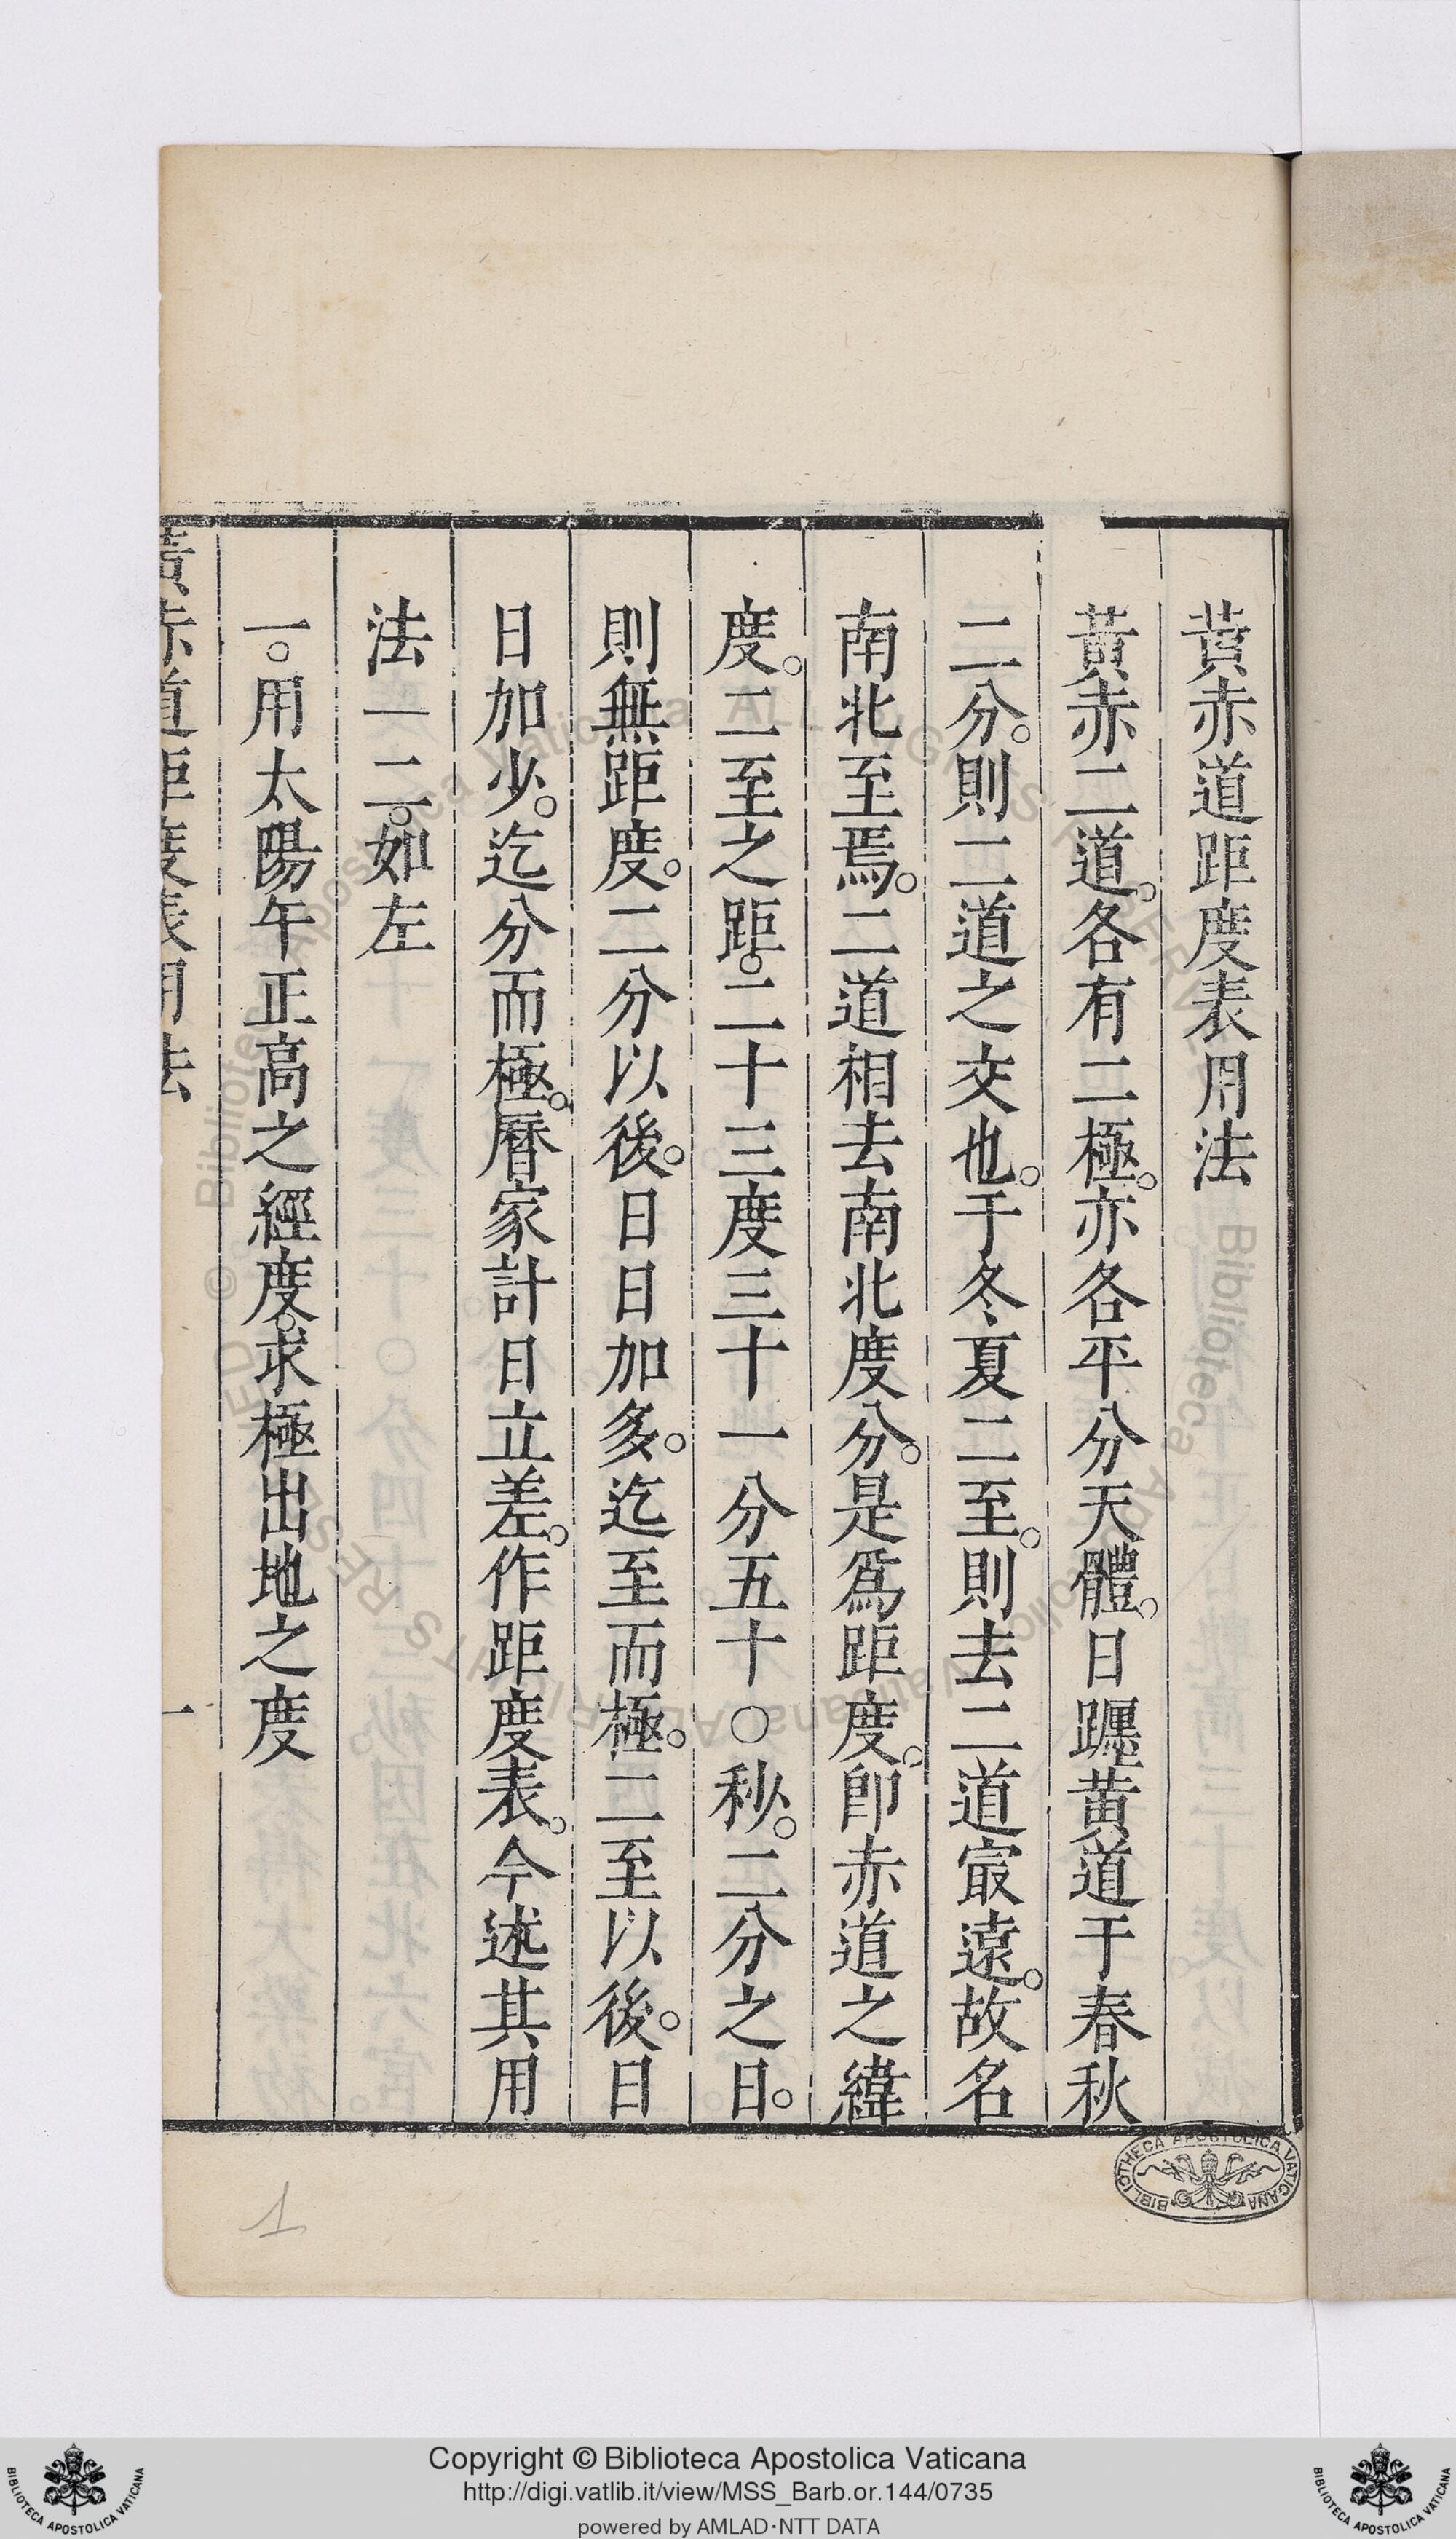 黃赤道距度表用法
黃赤二道。各有二極。亦各平分天體。日躔黃道于春秋
二分。則二道之交也。于冬夏二至。則去二道㝡遠。故名
南北至焉。二道相去南北度分。是爲距度。卽赤道之緯
度。二至之距。二十三度三十一分五十〇秒。二分之日。
則無距度。二分以後。日日加多。迄至而極。二至以後。日
日加少。迄分而極。曆家計日立差。作距度表。今述其用
法一二。如左
一。用太陽午正高之經度。求極出地之度
黃赤道距度表用法 一
1
BIBLIOTHECA APOSTOLICA VATICANA
Copyright © Biblioteca Apostolica Vaticana
http://digi.vatlib.it/view/MSS_Barb.or.144/0735
powered by AMLAD·NTT DATA
BIBLIOTECA APOSTOLICA VATICANA
BIBLIOTECA APOSTOLICA VATICANA